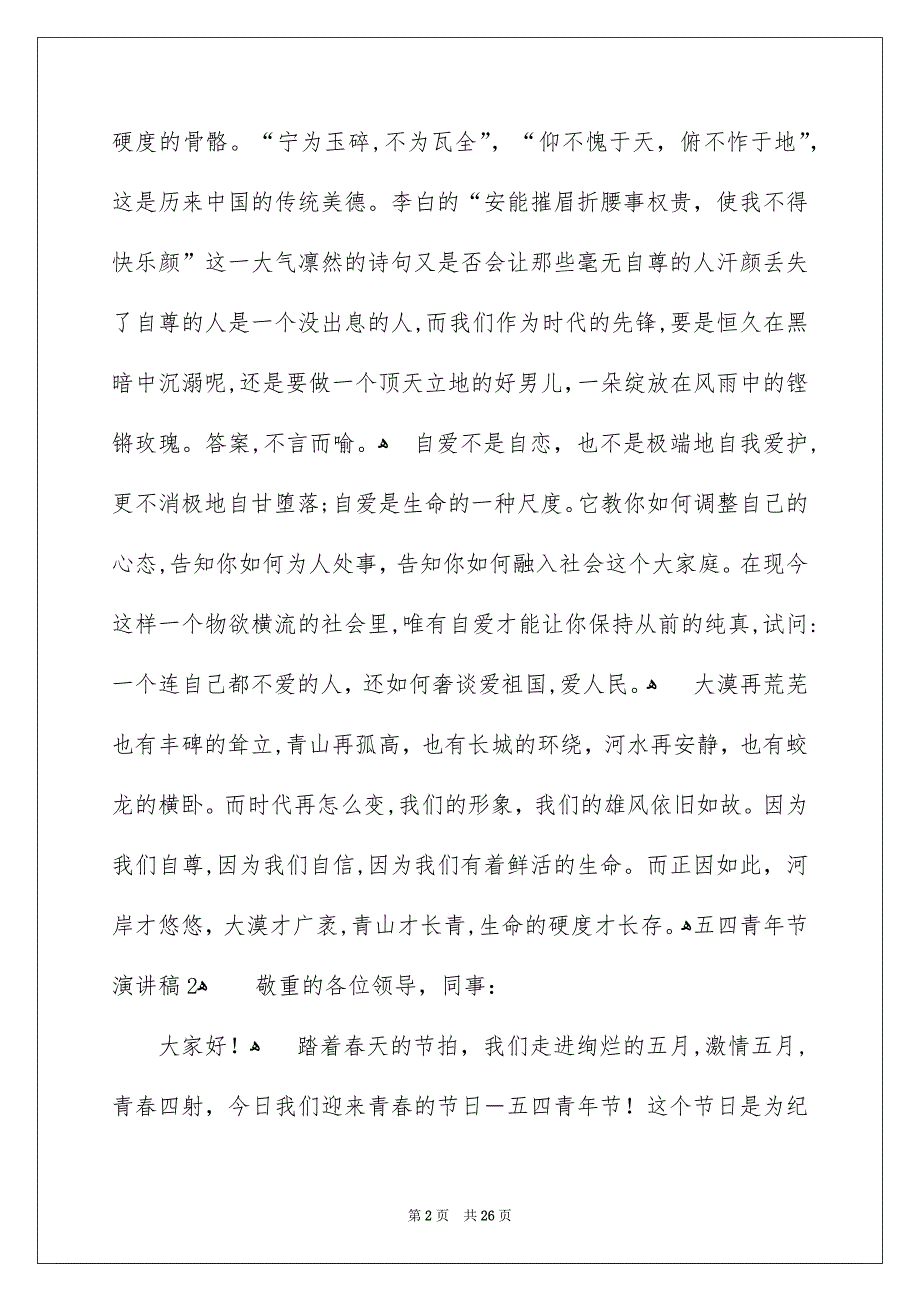 硬度的骨骼。“宁为玉碎,不为瓦全”，“仰不愧于天，俯不怍于地”，
这是历来中国的传统美德。李白的“安能摧眉折腰事权贵，使我不得
快乐颜”这一大气凛然的诗句又是否会让那些毫无自尊的人汗颜丢失
了自尊的人是一个没出息的人,而我们作为时代的先锋,要是恒久在黑
暗中沉溺呢,还是要做一个顶天立地的好男儿，一朵绽放在风雨中的铿
锵玫瑰。答案,不言而喻。ﻫ　自爱不是自恋，也不是极端地自我爱护,
更不消极地自甘堕落;自爱是生命的一种尺度。它教你如何调整自己的
心态,告知你如何为人处事，告知你如何融入社会这个大家庭。在现今
这样一个物欲横流的社会里,唯有自爱才能让你保持从前的纯真,试问:
一个连自己都不爱的人，还如何奢谈爱祖国,爱人民。ﻫ　大漠再荒芜
也有丰碑的耸立,青山再孤高，也有长城的环绕，河水再安静，也有蛟
龙的横卧。而时代再怎么变,我们的形象，我们的雄风依旧如故。因为
我们自尊,因为我们自信,因为我们有着鲜活的生命。而正因如此，河
岸才悠悠，大漠才广袤,青山才长青,生命的硬度才长存。ﻫ五四青年节
演讲稿2ﻫ　　敬重的各位领导，同事：
大家好！ﻫ　踏着春天的节拍，我们走进绚烂的五月,激情五月,
青春四射，今日我们迎来青春的节日－五四青年节！这个节日是为纪
第 2 页 共 26 页